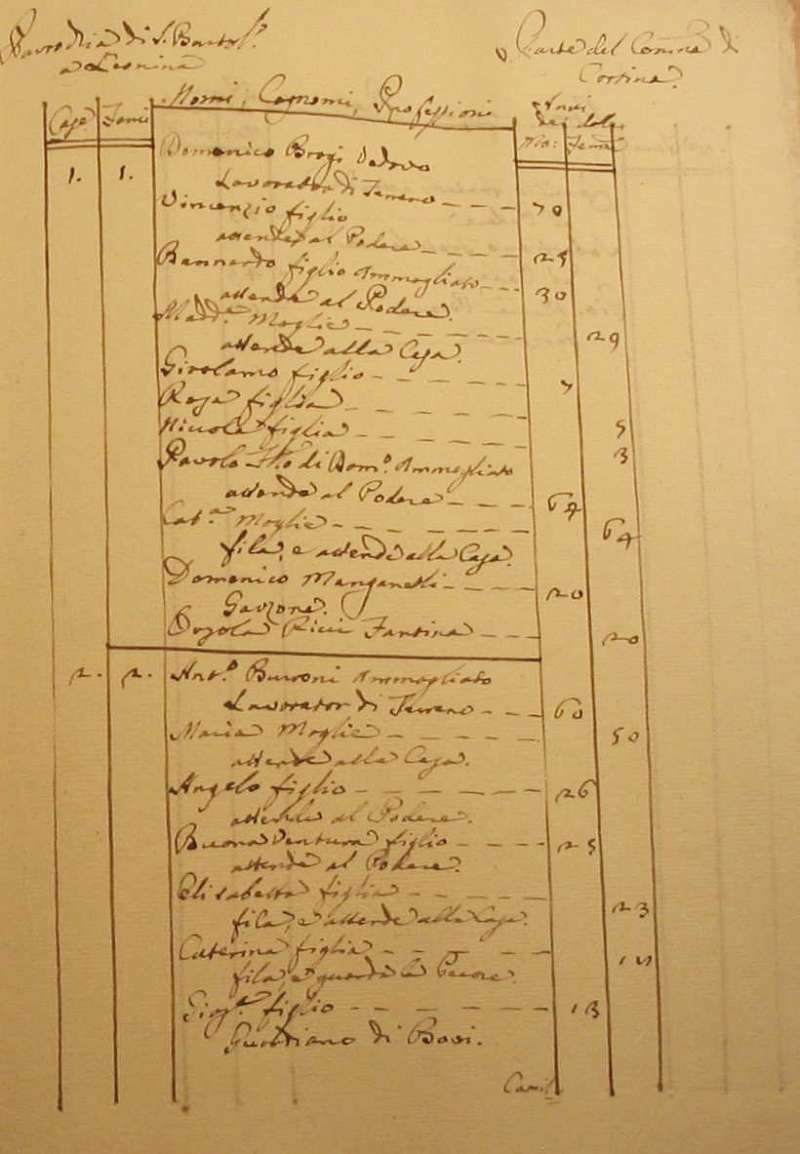 Parrocchia di S. Bartol.º
a Leonina
Parte del Comune di
Cortina
Case Fami
Nomi, Cognomi, Professioni
Anni
dei
Mas: Fem:
1. 1. Domenico Brogi Vedovo
Lavorator di Terreno 70
Vincenzio figlio
attende al Podere 25
Bernardo figlio Ammogliato 30
attende al Podere.
Madd.ª Moglie 29
attende alla Casa.
Girolamo figlio 7
Rosa figlia 5
Niccola figlia 3
Pavolo di Dom.º Ammogliato
attende al Podere 64
Cat.ª Moglie 64
fila, e attende alla Casa.
Domenico Manganelli 20
Garzone.
Orsola Ricci Fantina 20
2. 2. Ant.º Burroni Ammogliato
Lavorator di Terreno 60
Maria Moglie 50
attende alla Casa.
Angelo figlio 26
attende al Podere.
Buona Ventura figlio 25
attende al Podere.
Elisabetta figlia 23
fila, e attende alla Casa.
Caterina figlia
fila, e guarda le Pecore.
figlio 13
Guardiano di Bovi.